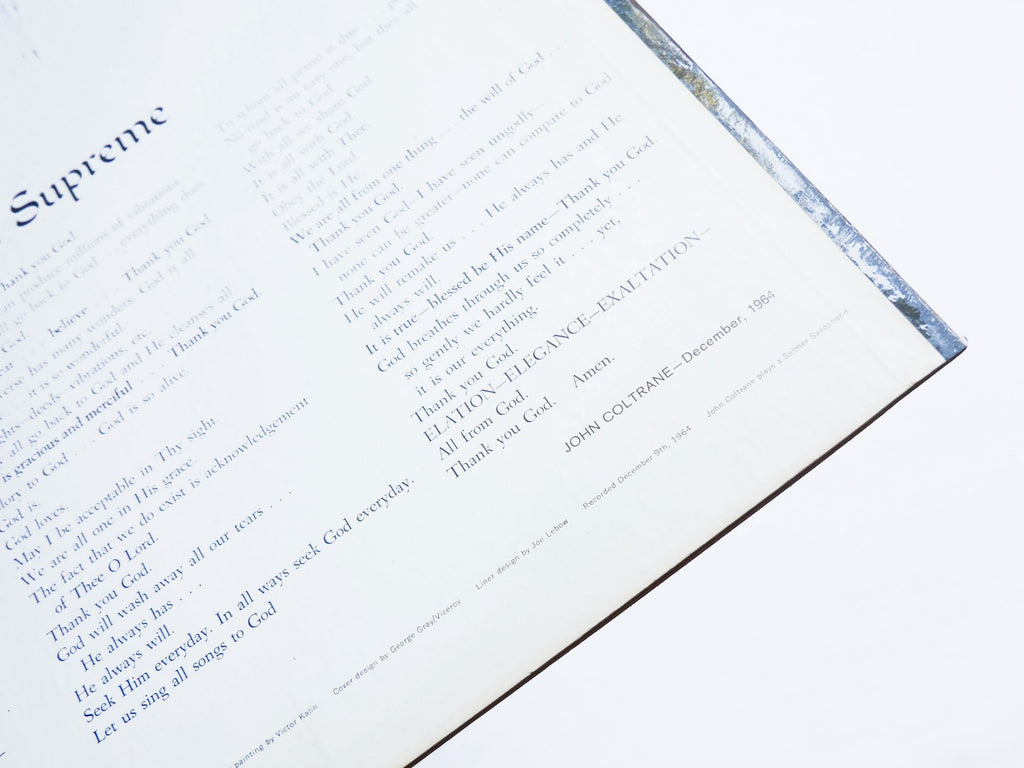 Supreme
Thank you God.
. . . everything does.
. . . Thank you God.
God is all.
it is so wonderful.
deeds—vibrations, etc.
all go back to God and He cleanses all.
is gracious and merciful . . . Thank you God.
God . . . God is so alive.
God is.
God loves.
May I be acceptable in Thy sight.
We are all one in His grace.
The fact that we do exist is acknowledgement
of Thee O Lord.
Thank you God.
God will wash away all our tears . . .
He always has . . .
He always will.
Seek Him everyday. In all ways seek God everyday.
Let us sing all songs to God
To whom all praise is due . . .
No road is an easy one, but they all
go back to God.
With all we share God.
It is all with God.
It is all with Thee.
Obey the Lord.
Blessed is He.
We are all from one thing . . . the will of God . . .
Thank you God.
I have seen God—I have seen ungodly—
none can be greater—none can compare to God.
Thank you God.
He will remake us . . . He always has and He
always will.
It is true—blessed be His name—Thank you God.
God breathes through us so completely . . .
so gently we hardly feel it . . . yet,
it is our everything.
Thank you God.
ELATION—ELEGANCE—EXALTATION—
All from God.
Thank you God. Amen.
JOHN COLTRANE—December, 1964
painting by Victor Kalin Cover design by George Gray/Viceroy Liner design by Joe Lebow Recorded December 9th, 1964 John Coltrane plays a Selmer Saxophone